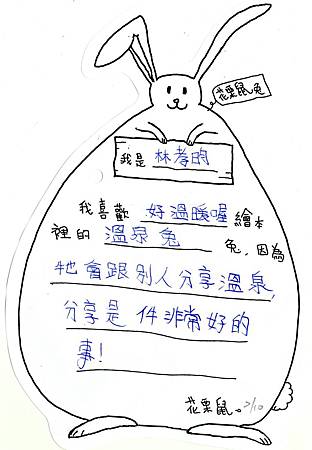 花栗鼠兔
我是 林孝昀
我喜歡 好溫暖喔 繪本
裡的 溫泉兔 兔，因為
牠會跟別人分享溫泉，
分享是 件非常好的
事！
花栗鼠。7/10